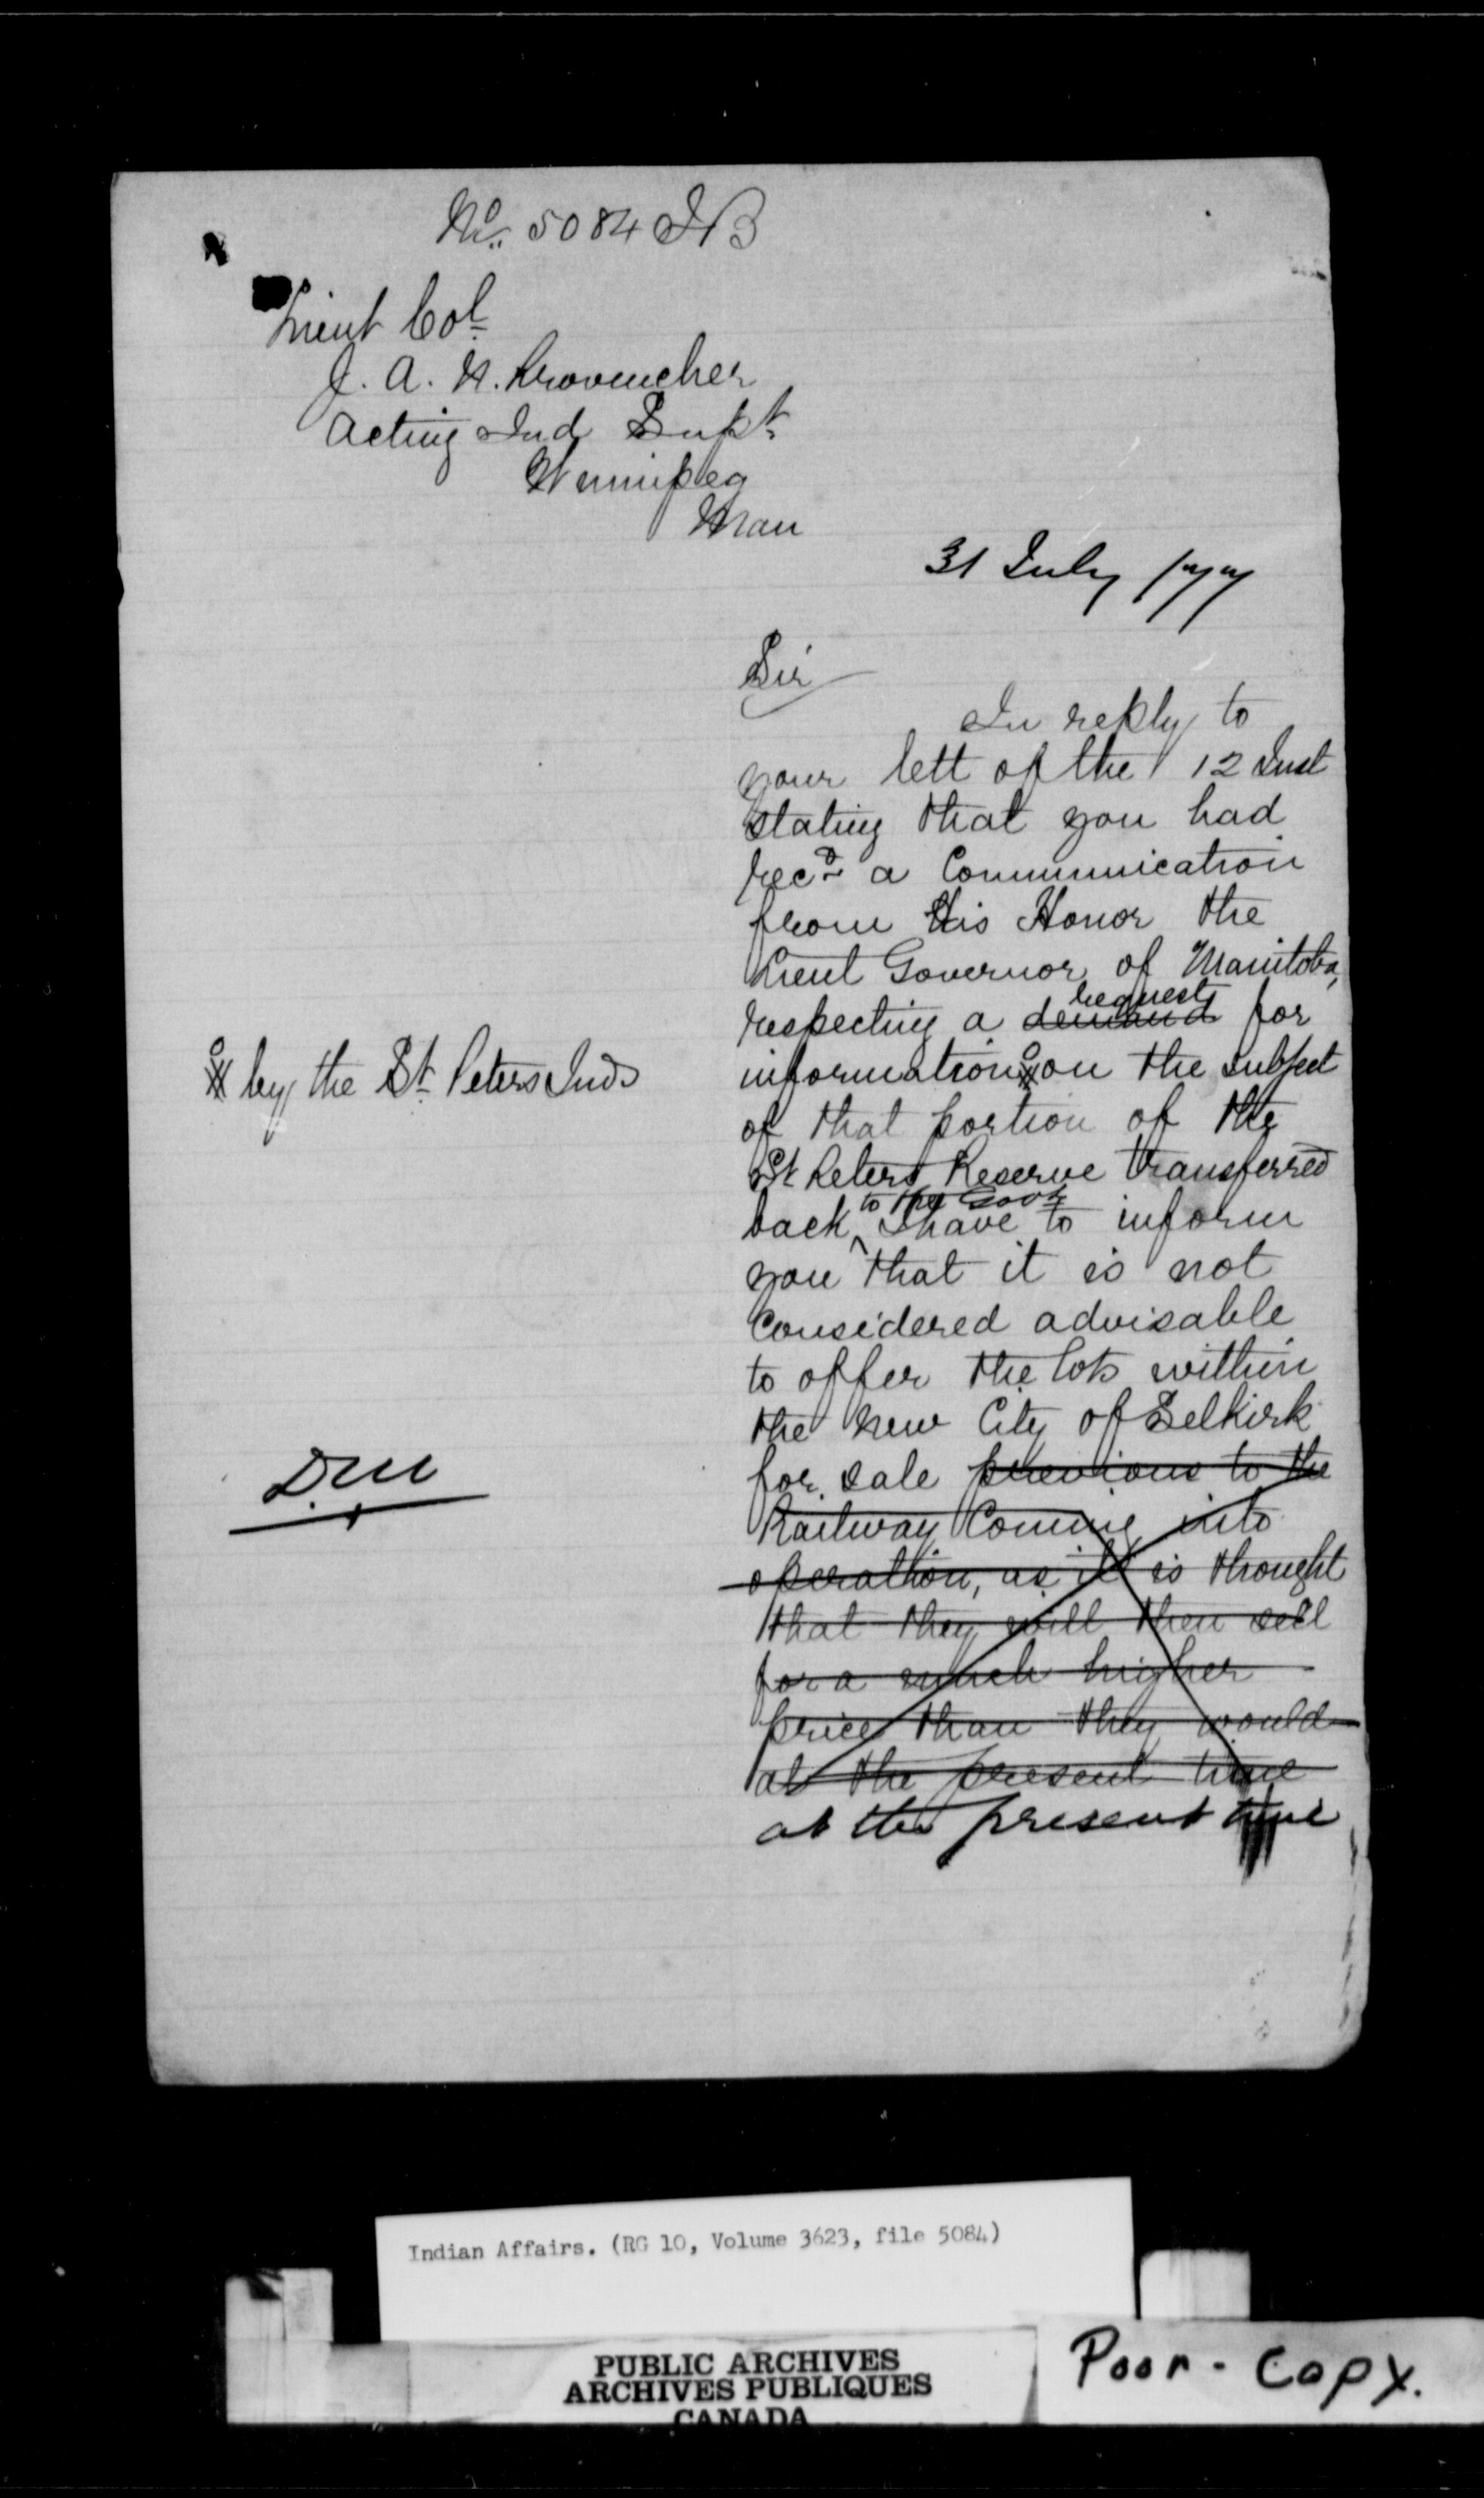 No. 5084 IB
Lieut Col
J. A. N. Provencher
Acting Ind Supt
Winnipeg
Man
31 July 1877
Sir
In reply to
your lett of the 12 Inst
stating that you had
recd a Communication
from His Honor the
Lieut Governor of Manitoba,
request
respecting a demand for
information on the subject
by the St Peters Inds
of that portion of the
St Peters Reserve transferred
to the Govt
back, I have to inform
you that it is not
Considered advisable
to offer the lots within
the New City of Selkirk
for sale previous to the
Railway Coming into
operation, as it is thought
that they will then sell
for a much higher
price than they would
at the present time
at the present time
Indian Affairs. (RG 10, Volume 3623, file 5084)
PUBLIC ARCHIVES
ARCHIVES PUBLIQUES
CANADA
Poor - Copy.